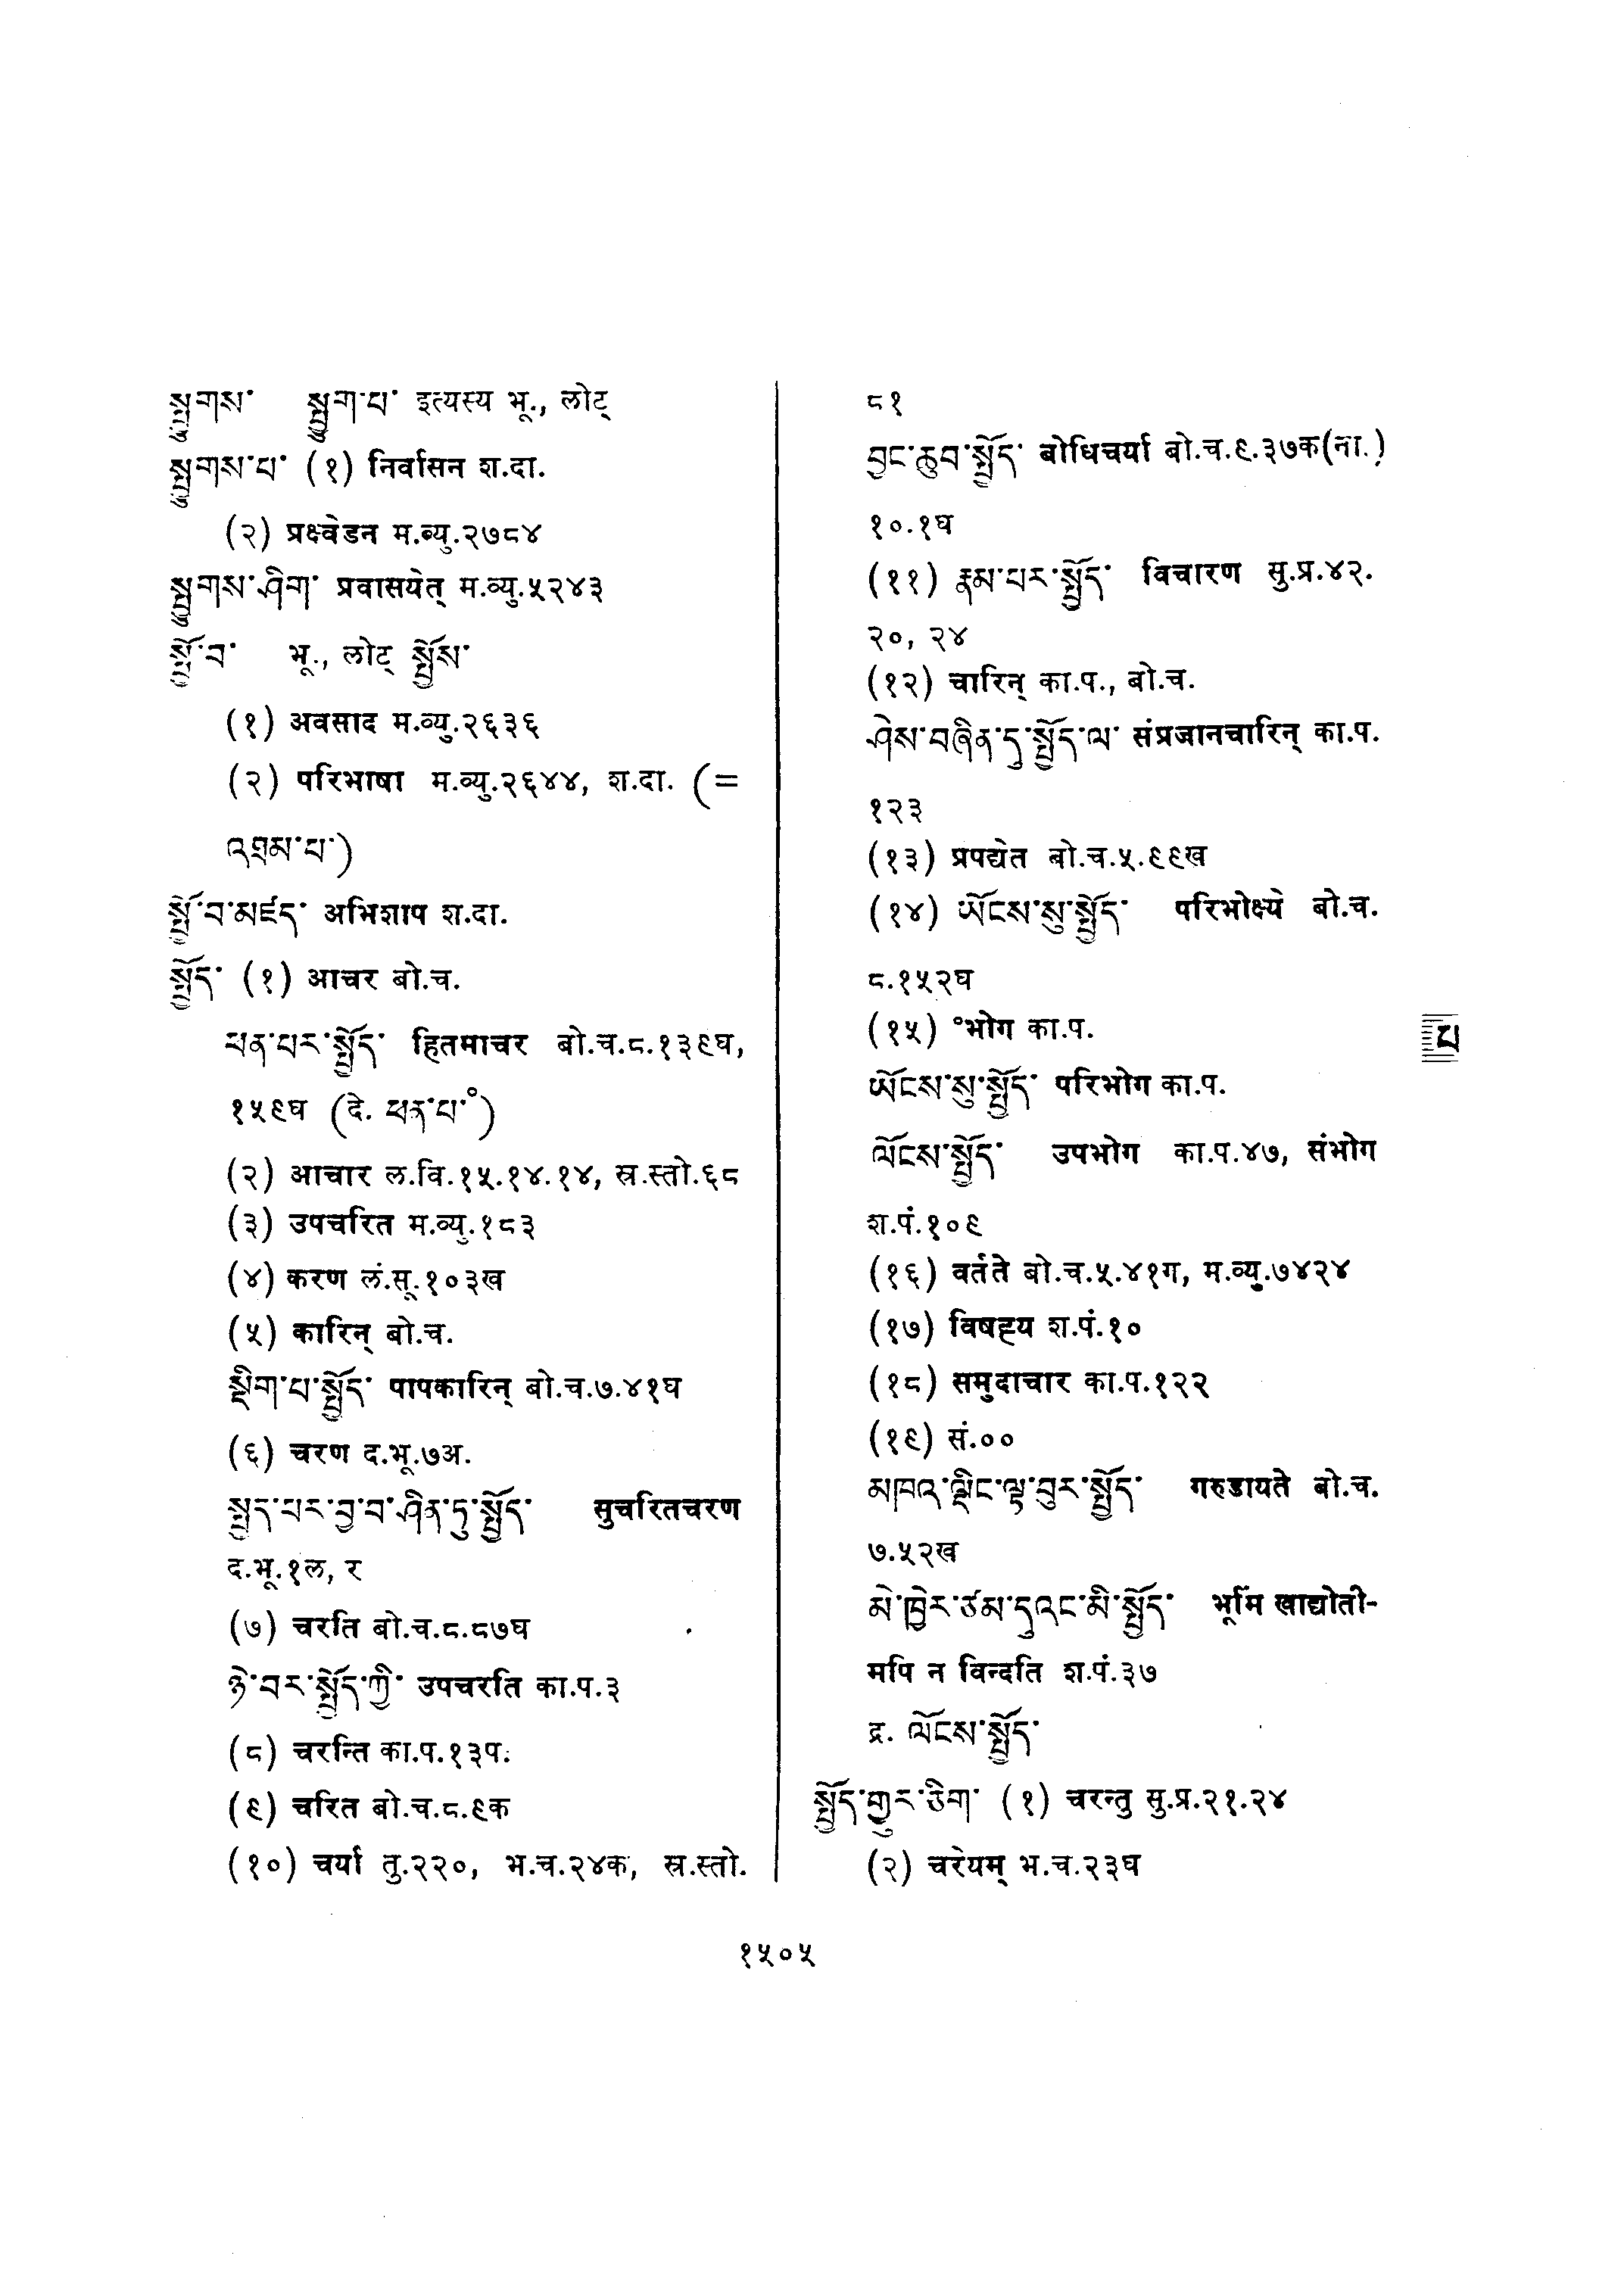 སྤྱུགས་ སྤྱུག་པ་ इत्यस्य भू., लोट्
སྤྱུགས་པ་ (१) निर्वासन श.दा.
(२) प्रक्ष्वेडन म.व्यु.२७८४
སྤྱུགས་ཤིག་ प्रवासयेत् म.व्यु.५२४३
སྤྱོ་བ་ भू., लोट् སྤྱོས་
(१) अवसाद म.व्यु.२६३६
(२) परिभाषा म.व्यु.२६४४, श.दा. (=
འགྲམ་པ་)
སྤྱོ་བ་མཛད་ अभिशाप श.दा.
སྤྱོད་ (१) आचर बो.च.
ཕན་པར་སྤྱོད་ हितमाचर बो.च.८.१३९घ,
१५९घ (दे. ཕན་པ་°)
(२) आचार ल.वि.१५.१४.१४, स्र.स्तो.६८
(३) उपचरित म.व्यु.१८३
(४) करण लं.सू.१०३ख
(५) कारिन् बो.च.
སྡིག་པ་སྤྱོད་ पापकारिन् बो.च.७.४१घ
(६) चरण द.भू.७अ.
སྤྱད་པར་བྱ་བ་ཤིན་ཏུ་སྤྱོད་ सुचरितचरण
द.भू.१ल, र
(७) चरति बो.च.८.८७घ
ཉེ་བར་སྤྱོད་ཀྱི་ उपचरति का.प.३
(८) चरन्ति का.प.१३प.
(९) चरित बो.च.८.९क
(१०) चर्या तु.२२०, भ.च.२४क, स्र.स्तो.
८१
བྱང་ཆུབ་སྤྱོད་ बोधिचर्या बो.च.९.३७क(ना.)
१०.१घ
(११) རྣམ་པར་སྤྱོད་ विचारण सु.प्र.४२.
२०, २४
(१२) चारिन् का.प., बो.च.
ཤེས་བཞིན་དུ་སྤྱོད་ལ་ संप्रजानचारिन् का.प.
१२३
(१३) प्रपद्येत बो.च.५.९९ख
(१४) ཡོངས་སུ་སྤྱོད་ परिभोक्ष्ये बो.च.
८.१५२घ
(१५) °भोग का.प.
ཡོངས་སུ་སྤྱོད་ परिभोग का.प.
ལོངས་སྤྱོད་ उपभोग का.प.४७, संभोग
श.पं.१०९
(१६) वर्तते बो.च.५.४१ग, म.व्यु.७४२४
(१७) विषह्य श.पं.१०
(१८) समुदाचार का.प.१२२
(१९) सं.००
མཁའ་ལྡིང་ལྟ་བུར་སྤྱོད་ गरुडायते बो.च.
७.५२ख
མེ་ཁྱེར་ཙམ་དུའང་མི་སྤྱོད་ भूमि खाद्योती-
मपि न विन्दति श.पं.३७
द्र. ལོངས་སྤྱོད་
སྤྱོད་གྱུར་ཅིག་ (१) चरन्तु सु.प्र.२१.२४
(२) चरेयम् भ.च.२३घ
པ
१५०५